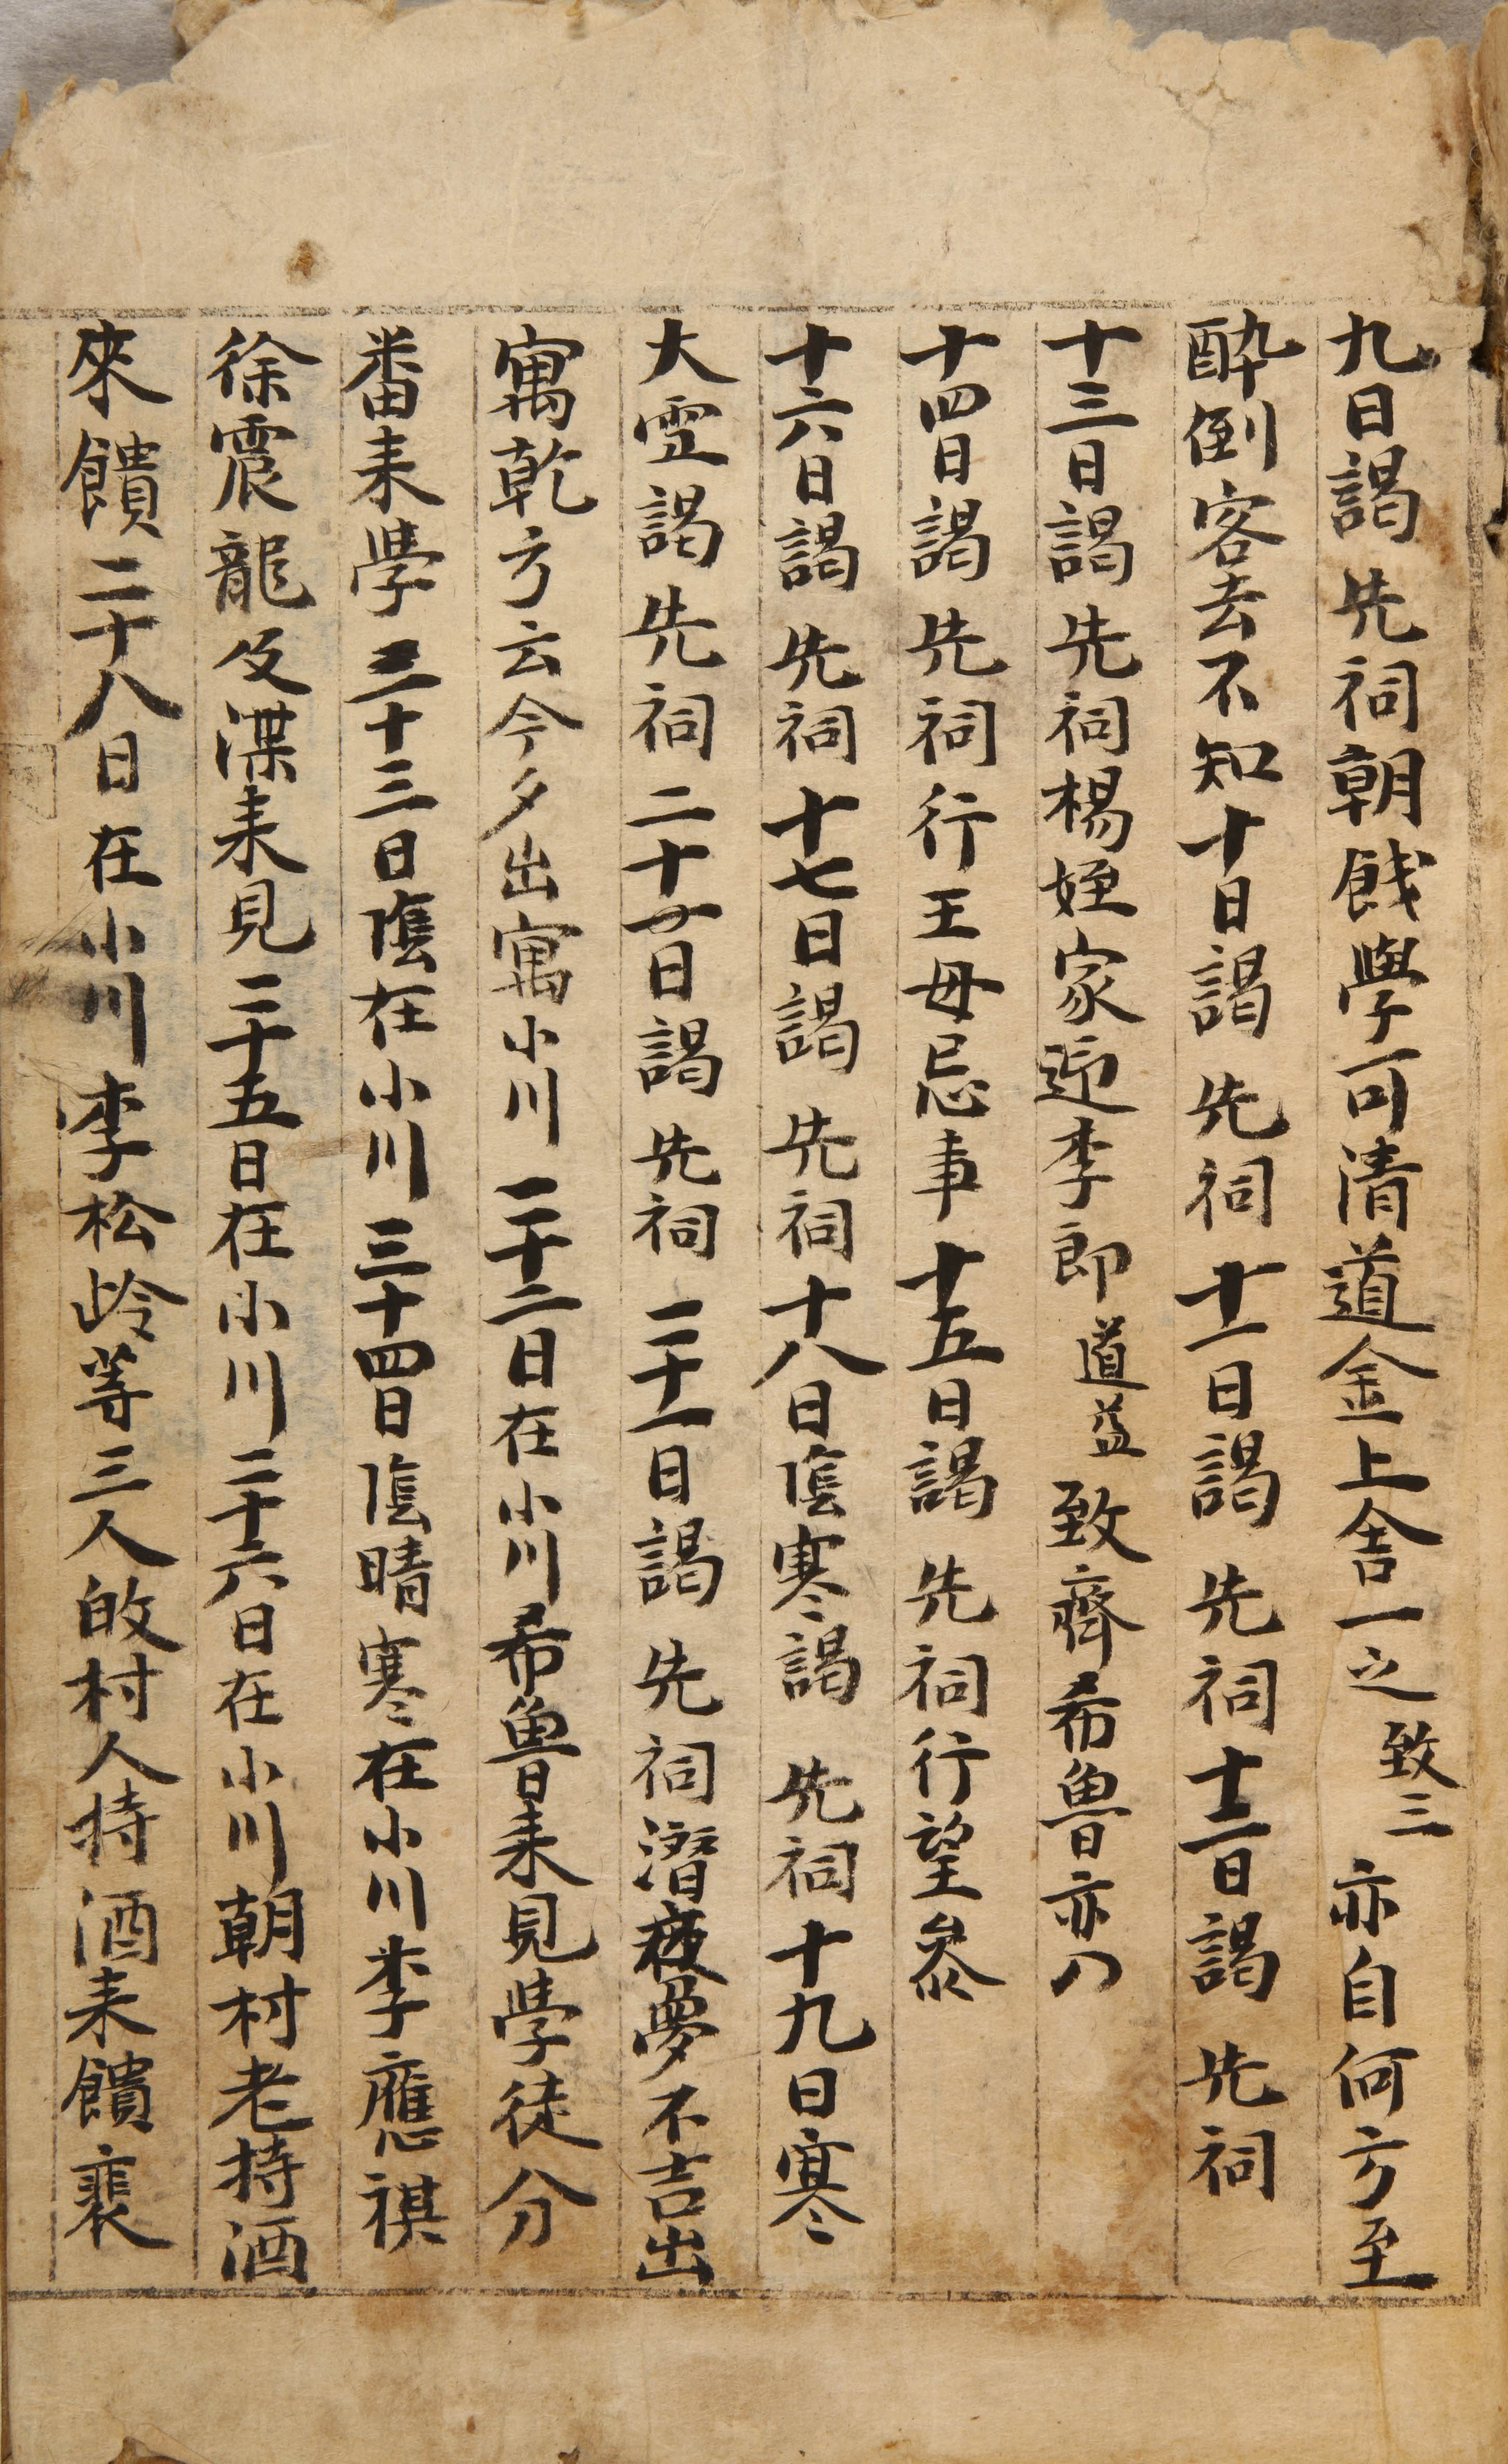 九日謁 先祠朝餞學可清道金上舍一之致三亦自何方至
醉倒客去不知十日謁 先祠十一日謁 先祠十二日謁 先祠
十三日謁 先祠楊姪家迎李郎道益致齊希魯亦
十四日謁 先祠行王母忌事十五日謁 先祠行望叅
十六日謁 先祠十七日謁 先祠十八日陰寒謁 先祠十九日寒
大雪謁 先祠二十日謁 先祠二十一日謁 先祠潛夜夢不吉出
寓乾方云今夕出寓小川二十二日在小川希魯来見學徒分
番来學二十三日陰在小川二十四日陰晴寒在小川李應祺
徐震龍及渫来見二十五日在小川二十六日在小川朝村老持酒
來饋二十八日在小川李松岭等三人皈村人持酒来饋裵